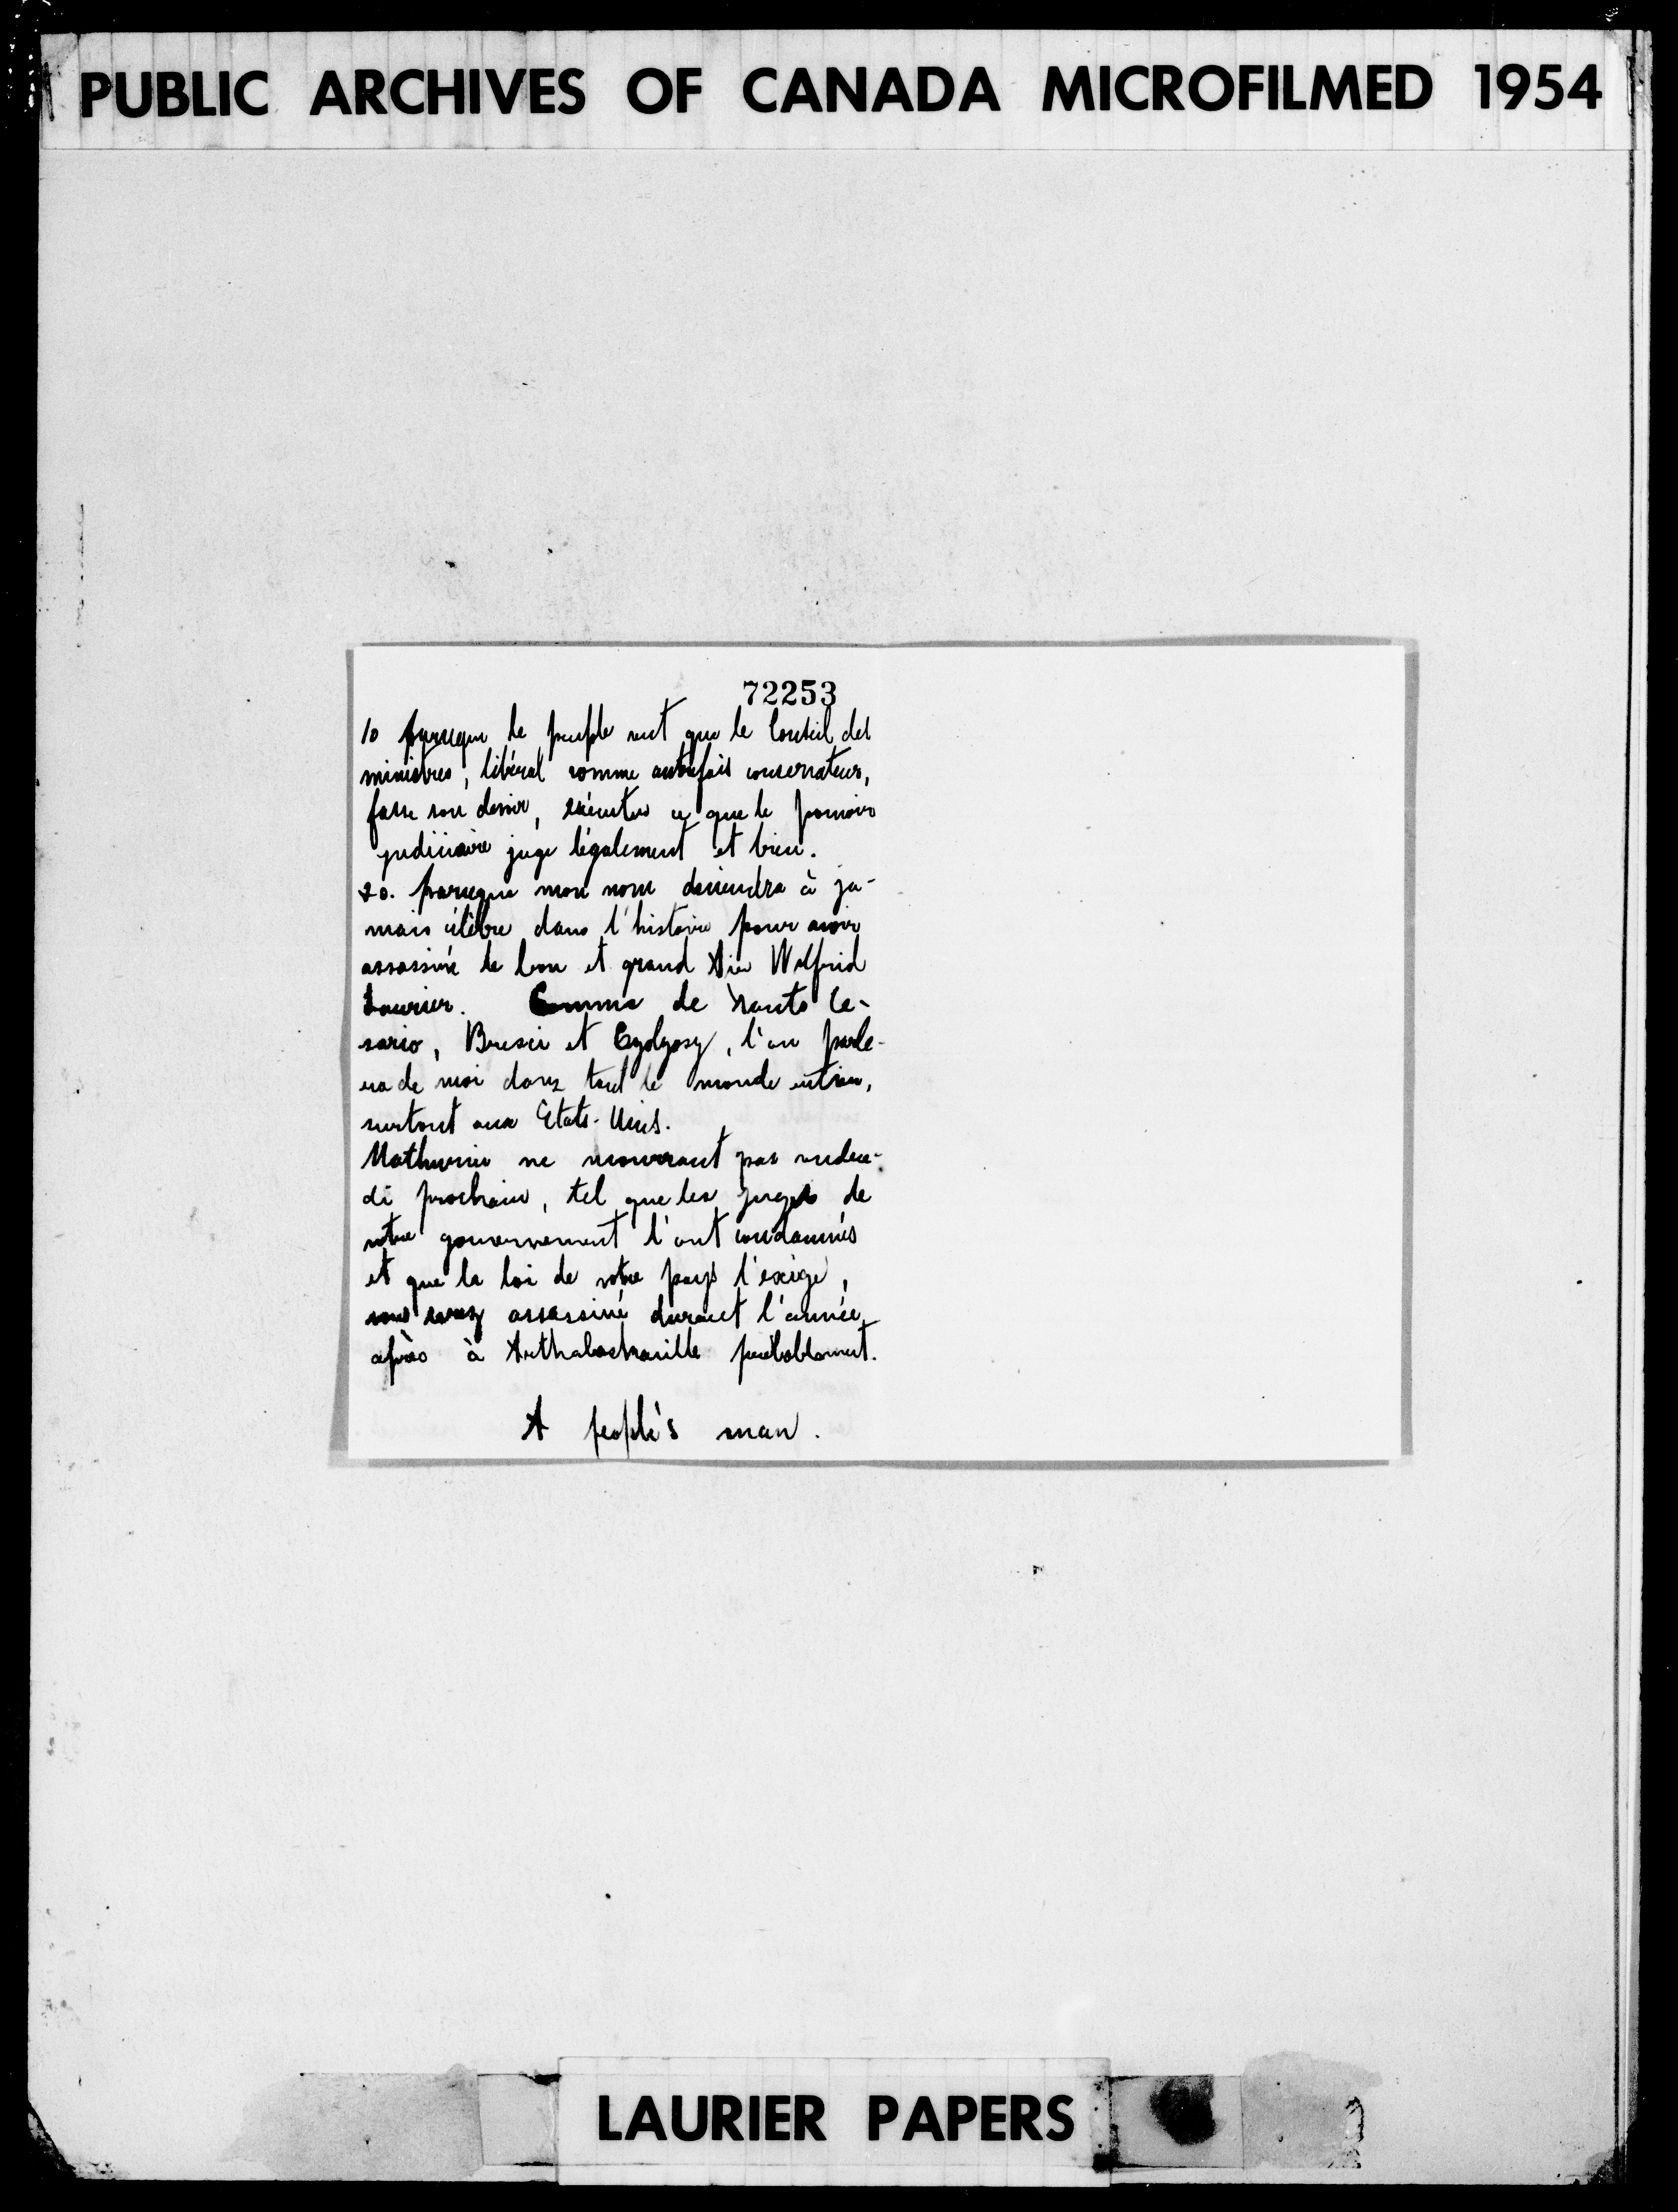 PUBLIC ARCHIVES OF CANADA MICROFILMED 1954
72253
10 parceque le peuple veut que le Conseil des
ministres, libéral comme autrefois conservateur,
fasse son devoir, exécuter ce que le pouvoir
judiciaire juge légalement et bien.
20. parceque mon nom deviendra à ja-
mais célèbre dans l'histoire pour avoir
assassiné le bon et grand Sir Wilfrid
Laurier. Comme de Santo Ce-
sario, Bresci et Czolgosz, l'on parle-
ra de moi dans tout le monde entier,
surtout aux Etats-Unis.
Mathurin ne mourrant pas vendre-
di prochain, tel que les juges de
votre gouvernement l'ont condamnés
et que la loi de votre pays l'exige,
vous serez assassiné durant l'année,
après à Arthabaskaville probablement.
A people's man.
LAURIER PAPERS